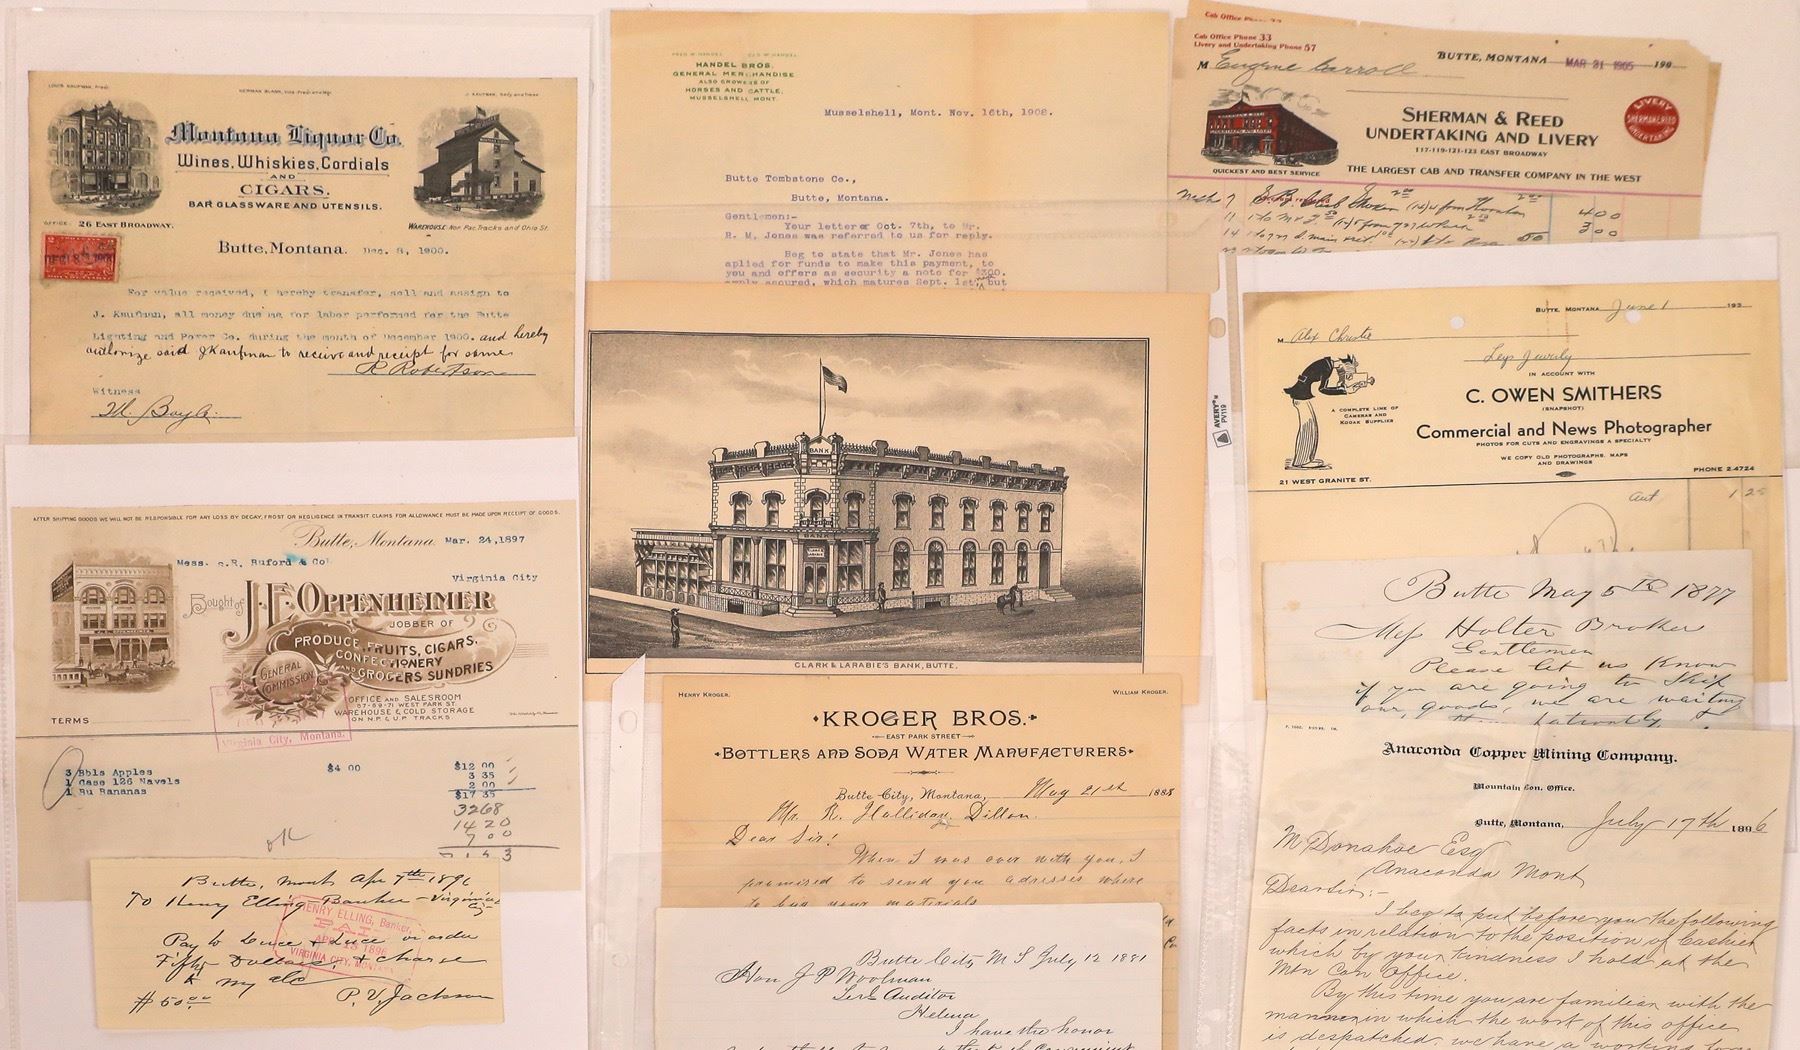 LOUIS KAUFMAN, Prest.
HERMAN BLANK, Vice-Prest and Mgr.
J. KAUFMAN, Secty and Treas.
Montana Liquor Co.
Wines, Whiskies, Cordials
AND
CIGARS.
BAR GLASSWARE AND UTENSILS.
OFFICE: 26 EAST BROADWAY.
WAREHOUSE Nor. Pac. Tracks and Ohio St.
Butte, Montana. Dec. 8, 1900.
For value received, I hereby transfer, sell and assign to
J. Kaufman, all money due me for labor performed for the Butte
Lighting and Power Co. during the month of December 1900. and hereby
authorize said J Kaufman to receive and receipt for same
R Robertson
Witness
M. Boyle
AFTER SHIPPING GOODS WE WILL NOT BE RESPONSIBLE FOR ANY LOSS BY DECAY, FROST OR NEGLIGENCE IN TRANSIT. CLAIMS FOR ALLOWANCE MUST BE MADE UPON RECEIPT OF GOODS.
Butte, Montana. Mar. 24, 1897
Mess. S.R. Buford & Co.
Virginia City
Bought of J.F. OPPENHEIMER
JOBBER OF
PRODUCE, FRUITS, CIGARS,
CONFECTIONERY
AND GROCERS SUNDRIES
GENERAL
COMMISSION
OFFICE AND SALESROOM
57-59-71 WEST PARK ST.
WAREHOUSE & COLD STORAGE
ON N.P. & U.P. TRACKS
TERMS
Virginia City, Montana.
3 Bbls Apples $4 00 $12 00
1 Case 126 Navels 3 35
1 Bu Bananas 2 00
$17 35
3268
1420
700
7153
ok
Butte, Mont Apr 7th 1896
To Henry Elling Banker - Virginia City
Pay to Luce & Luce or order
Fifty Dollars, & charge
to my a/c
$50.00 P. V. Jackson
HENRY ELLING, Banker,
PAID
APR 15 1896
VIRGINIA CITY, MONTANA
FRED W HANDEL GEO W HANDEL
HANDEL BROS.
GENERAL MERCHANDISE
ALSO GROWERS OF
HORSES AND CATTLE,
MUSSELSHELL MONT.
Musselshell, Mont. Nov. 16th, 1908.
Butte Tombstone Co.,
Butte, Montana.
Gentlemen:-
Your letter of Oct. 7th, to Mr.
R. M. Jones was referred to us for reply.
Beg to state that Mr. Jones has
aplied for funds to make this payment, to
you and offers as security a note for $300.
amply secured, which matures Sept. 1st, but
BANK
BANK
CLARK & LARABIE
CLARK & LARABIE'S BANK, BUTTE.
AVERY
PV119
HENRY KROGER. WILLIAM KROGER.
KROGER BROS.
EAST PARK STREET
BOTTLERS AND SODA WATER MANUFACTURERS
Butte City, Montana, May 21st 1888
Mr. R. Halliday, Dillon.
Dear Sir!
When I was over with you, I
promised to send you adresses where
to buy your materials
Butte City M T July 12 1881
Hon J P Woolman
Ter Auditor
Helena
I have the honor
Cab Office Phone 33
Cab Office Phone 33
Livery and Undertaking Phone 57
M Eugene Carroll
BUTTE, MONTANA MAR 31 1905 190
SHERMAN & REED
UNDERTAKING AND LIVERY
117-119-121-123 EAST BROADWAY
QUICKEST AND BEST SERVICE
THE LARGEST CAB AND TRANSFER COMPANY IN THE WEST
LIVERY
SHERMAN & REED
UNDERTAKING
4 00
3 00
BUTTE, MONTANA June 1 193
M Alex Christie
Leys Jewelry
IN ACCOUNT WITH
C. OWEN SMITHERS
(SNAPSHOT)
A COMPLETE LINE OF
CAMERAS AND
KODAK SUPPLIES
Commercial and News Photographer
PHOTOS FOR CUTS AND ENGRAVINGS A SPECIALTY
WE COPY OLD PHOTOGRAPHS, MAPS
AND DRAWINGS
21 WEST GRANITE ST.
PHONE 2-4724
1 25
Butte May 5th 1877
Mess Holter Brother
Gentlemen
Please let us Know
if you are going to Ship
our goods, we are waiting
Anaconda Copper Mining Company.
Mountain Con. Office.
Butte, Montana, July 17th 1896
M Donahoe Esq
Anaconda Mont
Dear Sir:-
I beg to put before you the following
facts in relation to the position of Cashier
which by your kindness I hold at the
Mtn Con Office.
By this time you are familiar with the
manner in which the work of this office
is despatched. we have a working force